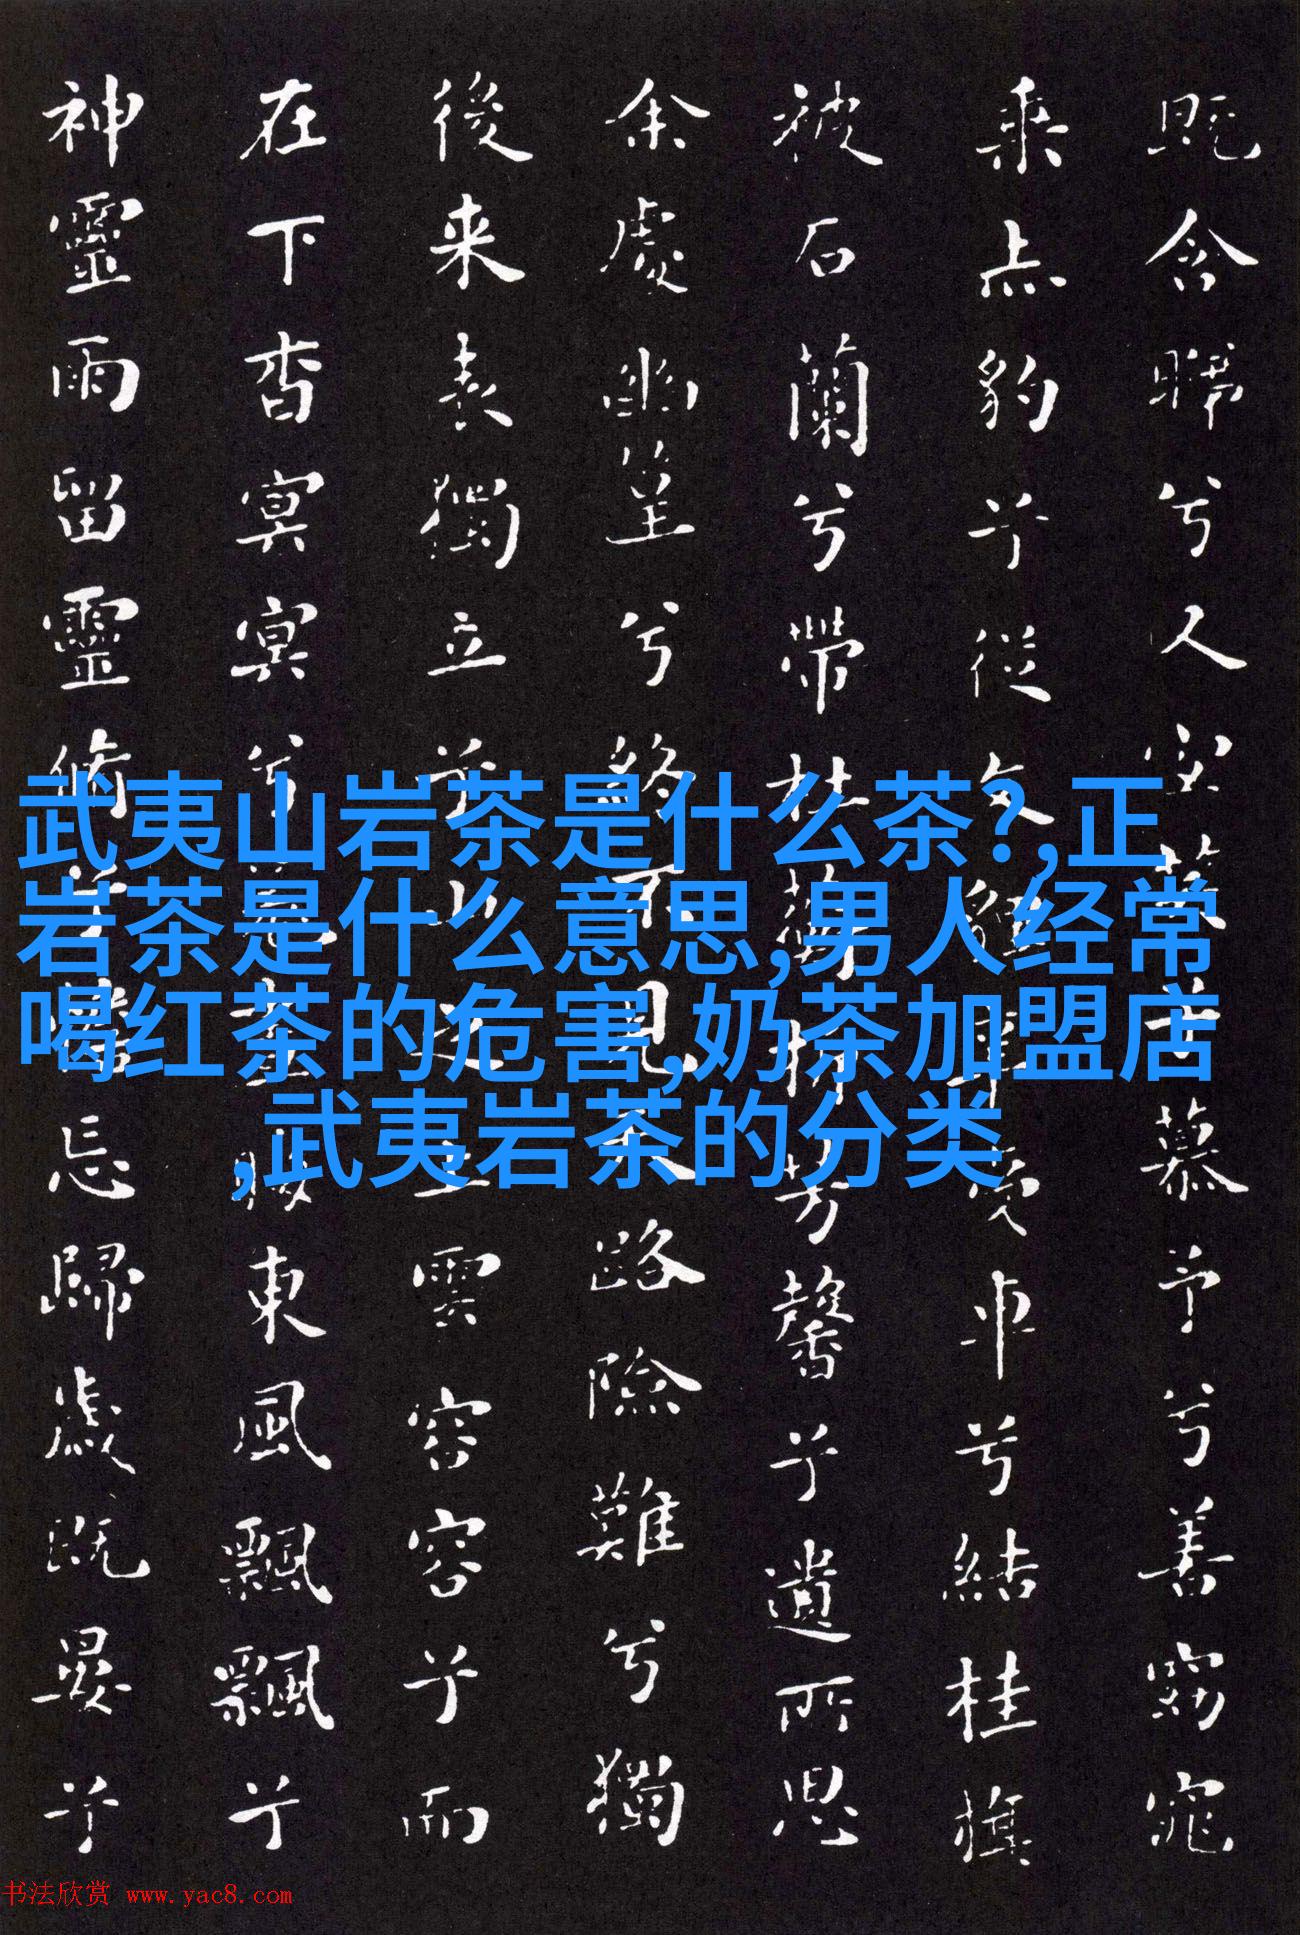 既含睇兮又宜笑子慕予兮善窈窕
乘赤豹兮從文狸辛夷車兮結桂旗
被石蘭兮帶杜蘅折芳馨兮遺所思
余處幽篁兮終不見天路險難兮獨
後来表獨立兮山之上雲容容兮而
在下杳冥冥兮羌晝晦東風飄飄兮
神靈雨留靈脩兮憺忘歸歲既晏兮
武夷山岩茶是什么茶?,正
岩茶是什么意思,男人经常
喝红茶的危害,奶茶加盟店
,武夷岩茶的分类
书法欣赏 www.yac8.com